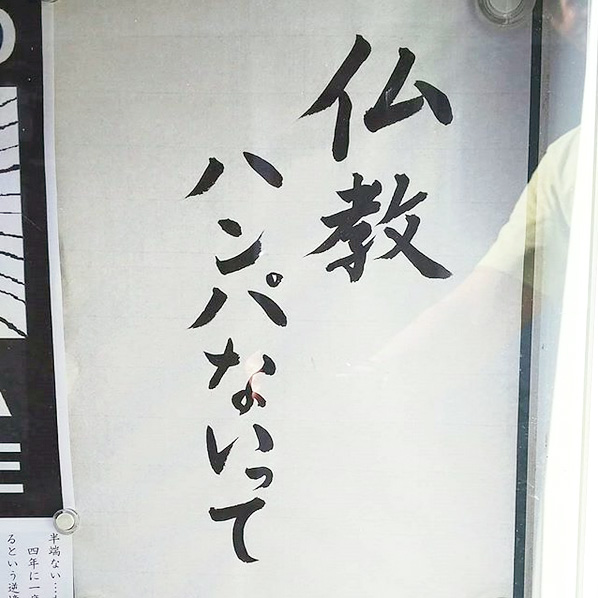 仏教
ハンパないって
半端ない…
四年に一度
るという逆境